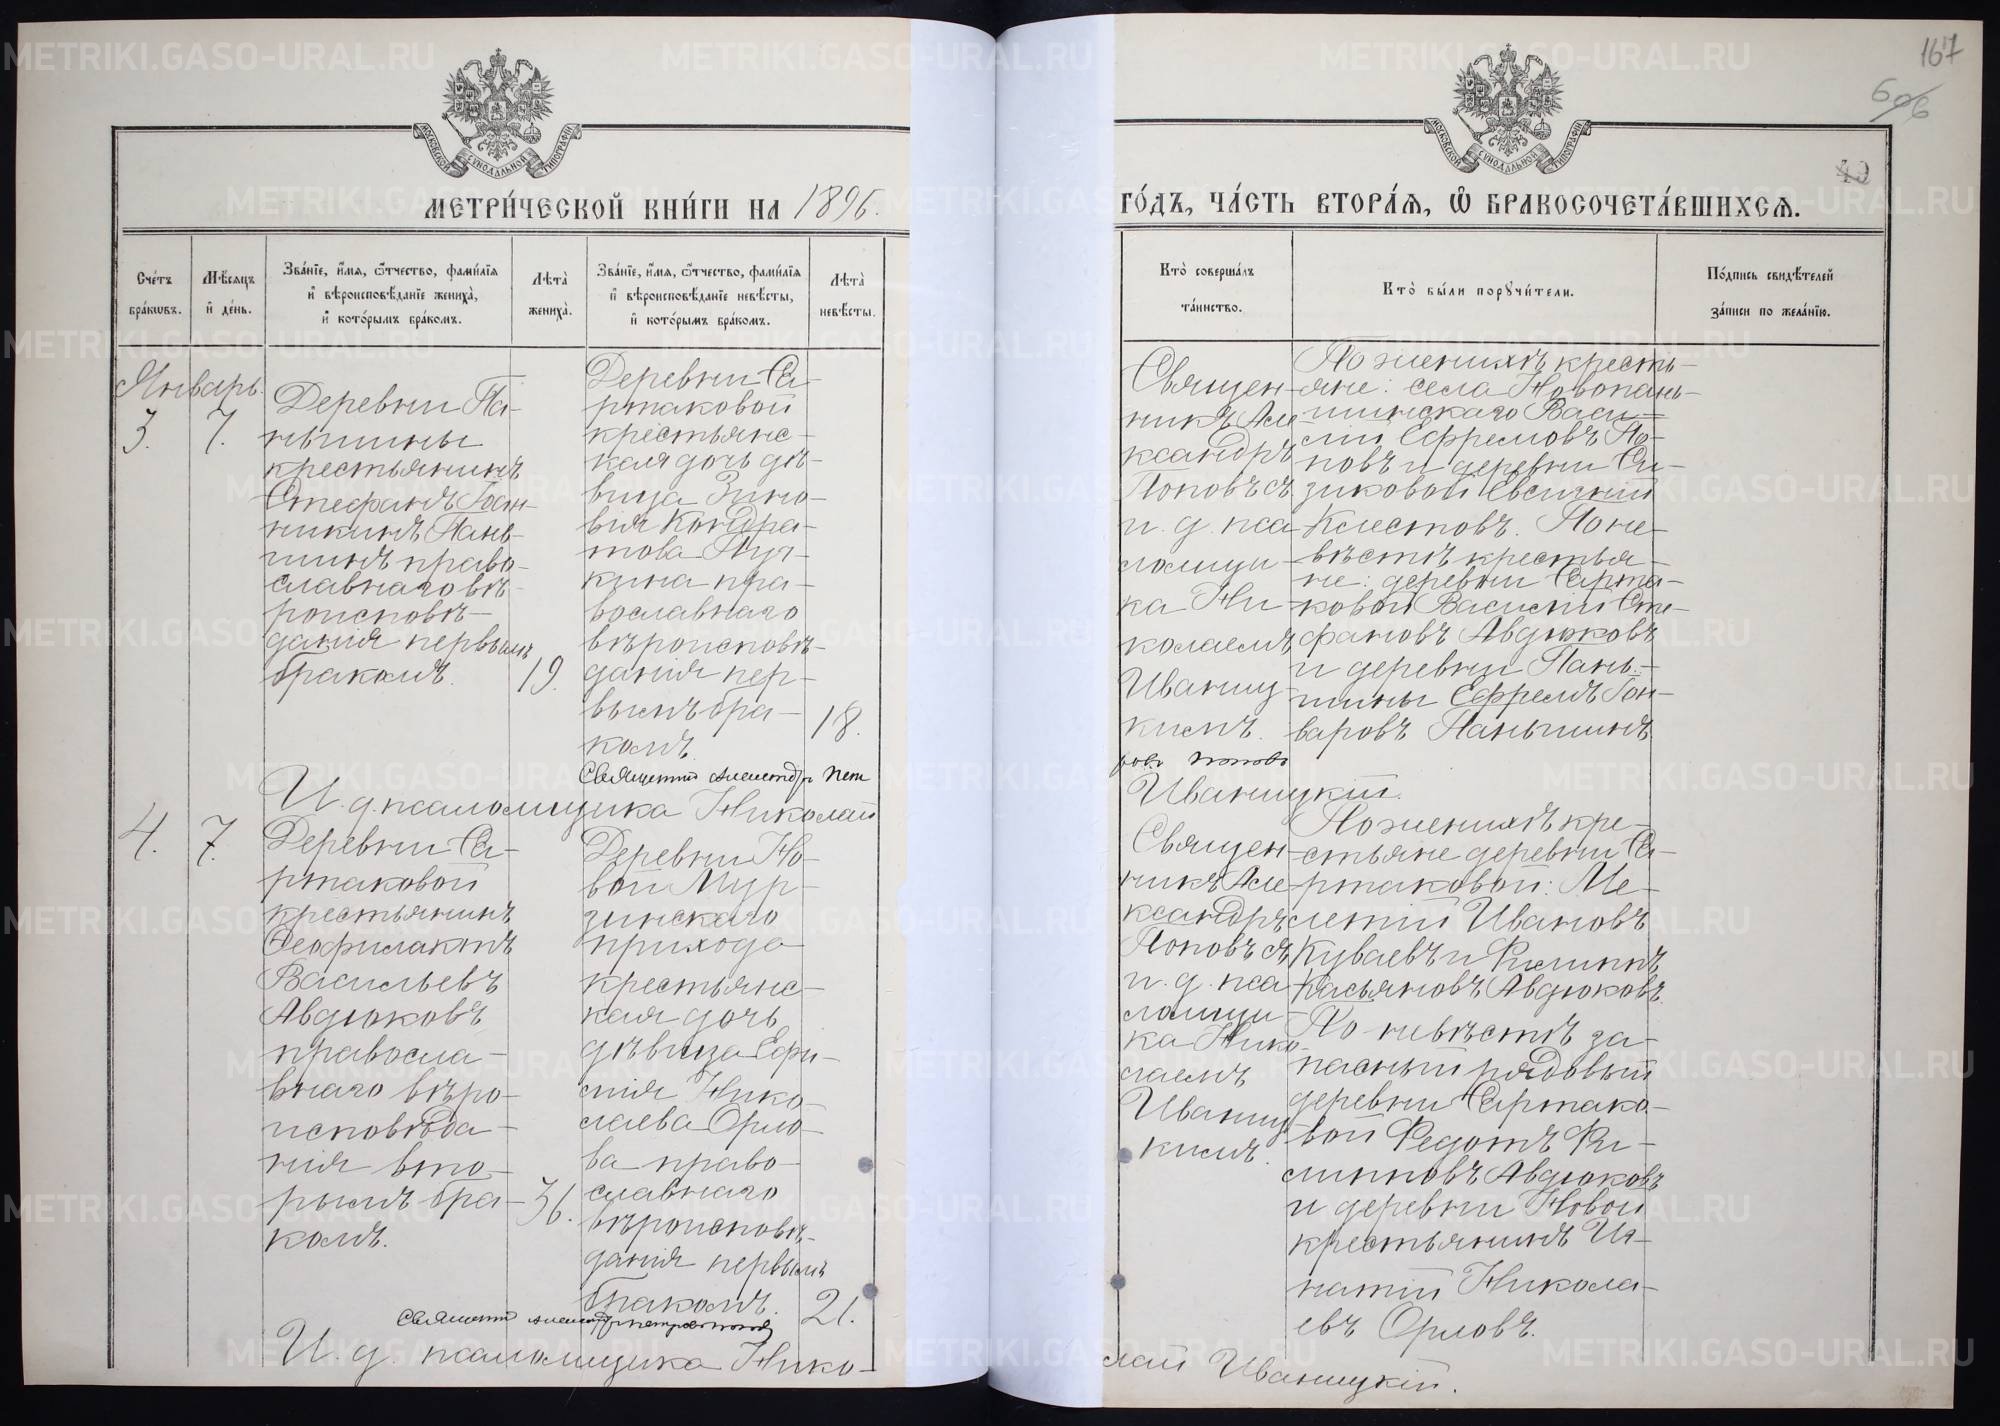 167
606
40
МОСКОВСКОЙ СѴНОДАЛЬНОЙ ТИПОГРАФІИ
МОСКОВСКОЙ СѴНОДАЛЬНОЙ ТИПОГРАФІИ
МЕТРИ́ЧЕСКОЙ КНИ́ГИ НА 1896.
ГО́ДЪ, ЧА́СТЬ ВТОРА́Ѧ, Ѡ҆ БРАКОСОЧЕТА́ВШИХСѦ.
Сче́тъ
бра́кѡвъ.
Мѣ́сѧцъ
и҆ де́нь.
Зва́нїе, и҆́мѧ, ѻ҆́тчество, фами́лїѧ
и҆ вѣроисповѣ́данїе жениха̀,
и҆ кото́рымъ бра́комъ.
Лѣ́та
жениха̀.
Зва́нїе, и҆́мѧ, ѻ҆́тчество, фами́лїѧ
и҆ вѣроисповѣ́данїе невѣ́сты,
и҆ кото́рымъ бра́комъ.
Лѣ́та
невѣ́сты.
Кто̀ соверша́лъ
та́инство.
Кто̀ бы́ли порꙋчи́тели.
По́дпись свидѣ́телей
за́писи по жела́нїю.
Январь
3.
7.
Деревни Па-
ньшины
крестьянинъ
Стефанъ Іоан-
никинъ Пань-
шинъ право-
славнаго вѣ-
роисповѣ-
данія первымъ
бракомъ.
19.
Деревни Са-
ртаковой
крестьянс-
кая дочь дѣ-
вица Зино-
вія Кондра-
това Пуч-
кина пра-
вославнаго
вѣроисповѣ-
данія пер-
вымъ бра-
комъ.
18.
Священ-
никъ Але-
ксандръ
Поповъ съ
и. д. пса-
ломщи-
ка Ни-
колаемъ
Иваниц-
кимъ.
По женихѣ кресть-
яне: села Новопань-
шинскаго Васи-
лій Ефремовъ По-
повъ и деревни Си-
зиковой Евсигній
Клестовъ. По не-
вѣстѣ крестья-
не: деревни Сарта-
ковой Василій Сте-
фановъ Авдюковъ
и деревни Пань-
шины Ефремъ Гон-
чаровъ Паньшинъ
Священникъ Александръ Пет
ровъ Поповъ
И. д. псаломщика Николай
Иваницкій.
4.
7.
Деревни Са-
ртаковой
крестьянинъ
Ѳеофилактъ
Васильевъ
Авдюковъ
правосла-
внаго вѣро-
исповѣда-
нія вто-
рымъ бра-
комъ.
36.
Деревни Но-
вой Мур-
зинскаго
прихода
крестьянс-
кая дочь
дѣвица Ефи-
мія Нико-
лаева Орло-
ва право-
славнаго
вѣроисповѣ-
данія первымъ
бракомъ.
21.
Священ-
никъ Але-
ксандръ
Поповъ съ
и. д. пса-
ломщи-
ка Нико-
лаемъ
Иваниц-
кимъ.
По женихѣ кре-
стьяне деревни Са-
ртаковой: Ме-
летій Ивановъ
Куваевъ и Филиппъ
Касьяновъ Авдюковъ.
По невѣстѣ за-
пасный рядовый
деревни Сартако-
вой Федотъ Фи-
липповъ Авдюковъ
и деревни Новой
крестьянинъ Иг-
натій Никола-
евъ Орловъ.
Священникъ Александръ Петровъ Поповъ
И. д. псаломщика Нико-
лай Иваницкій.